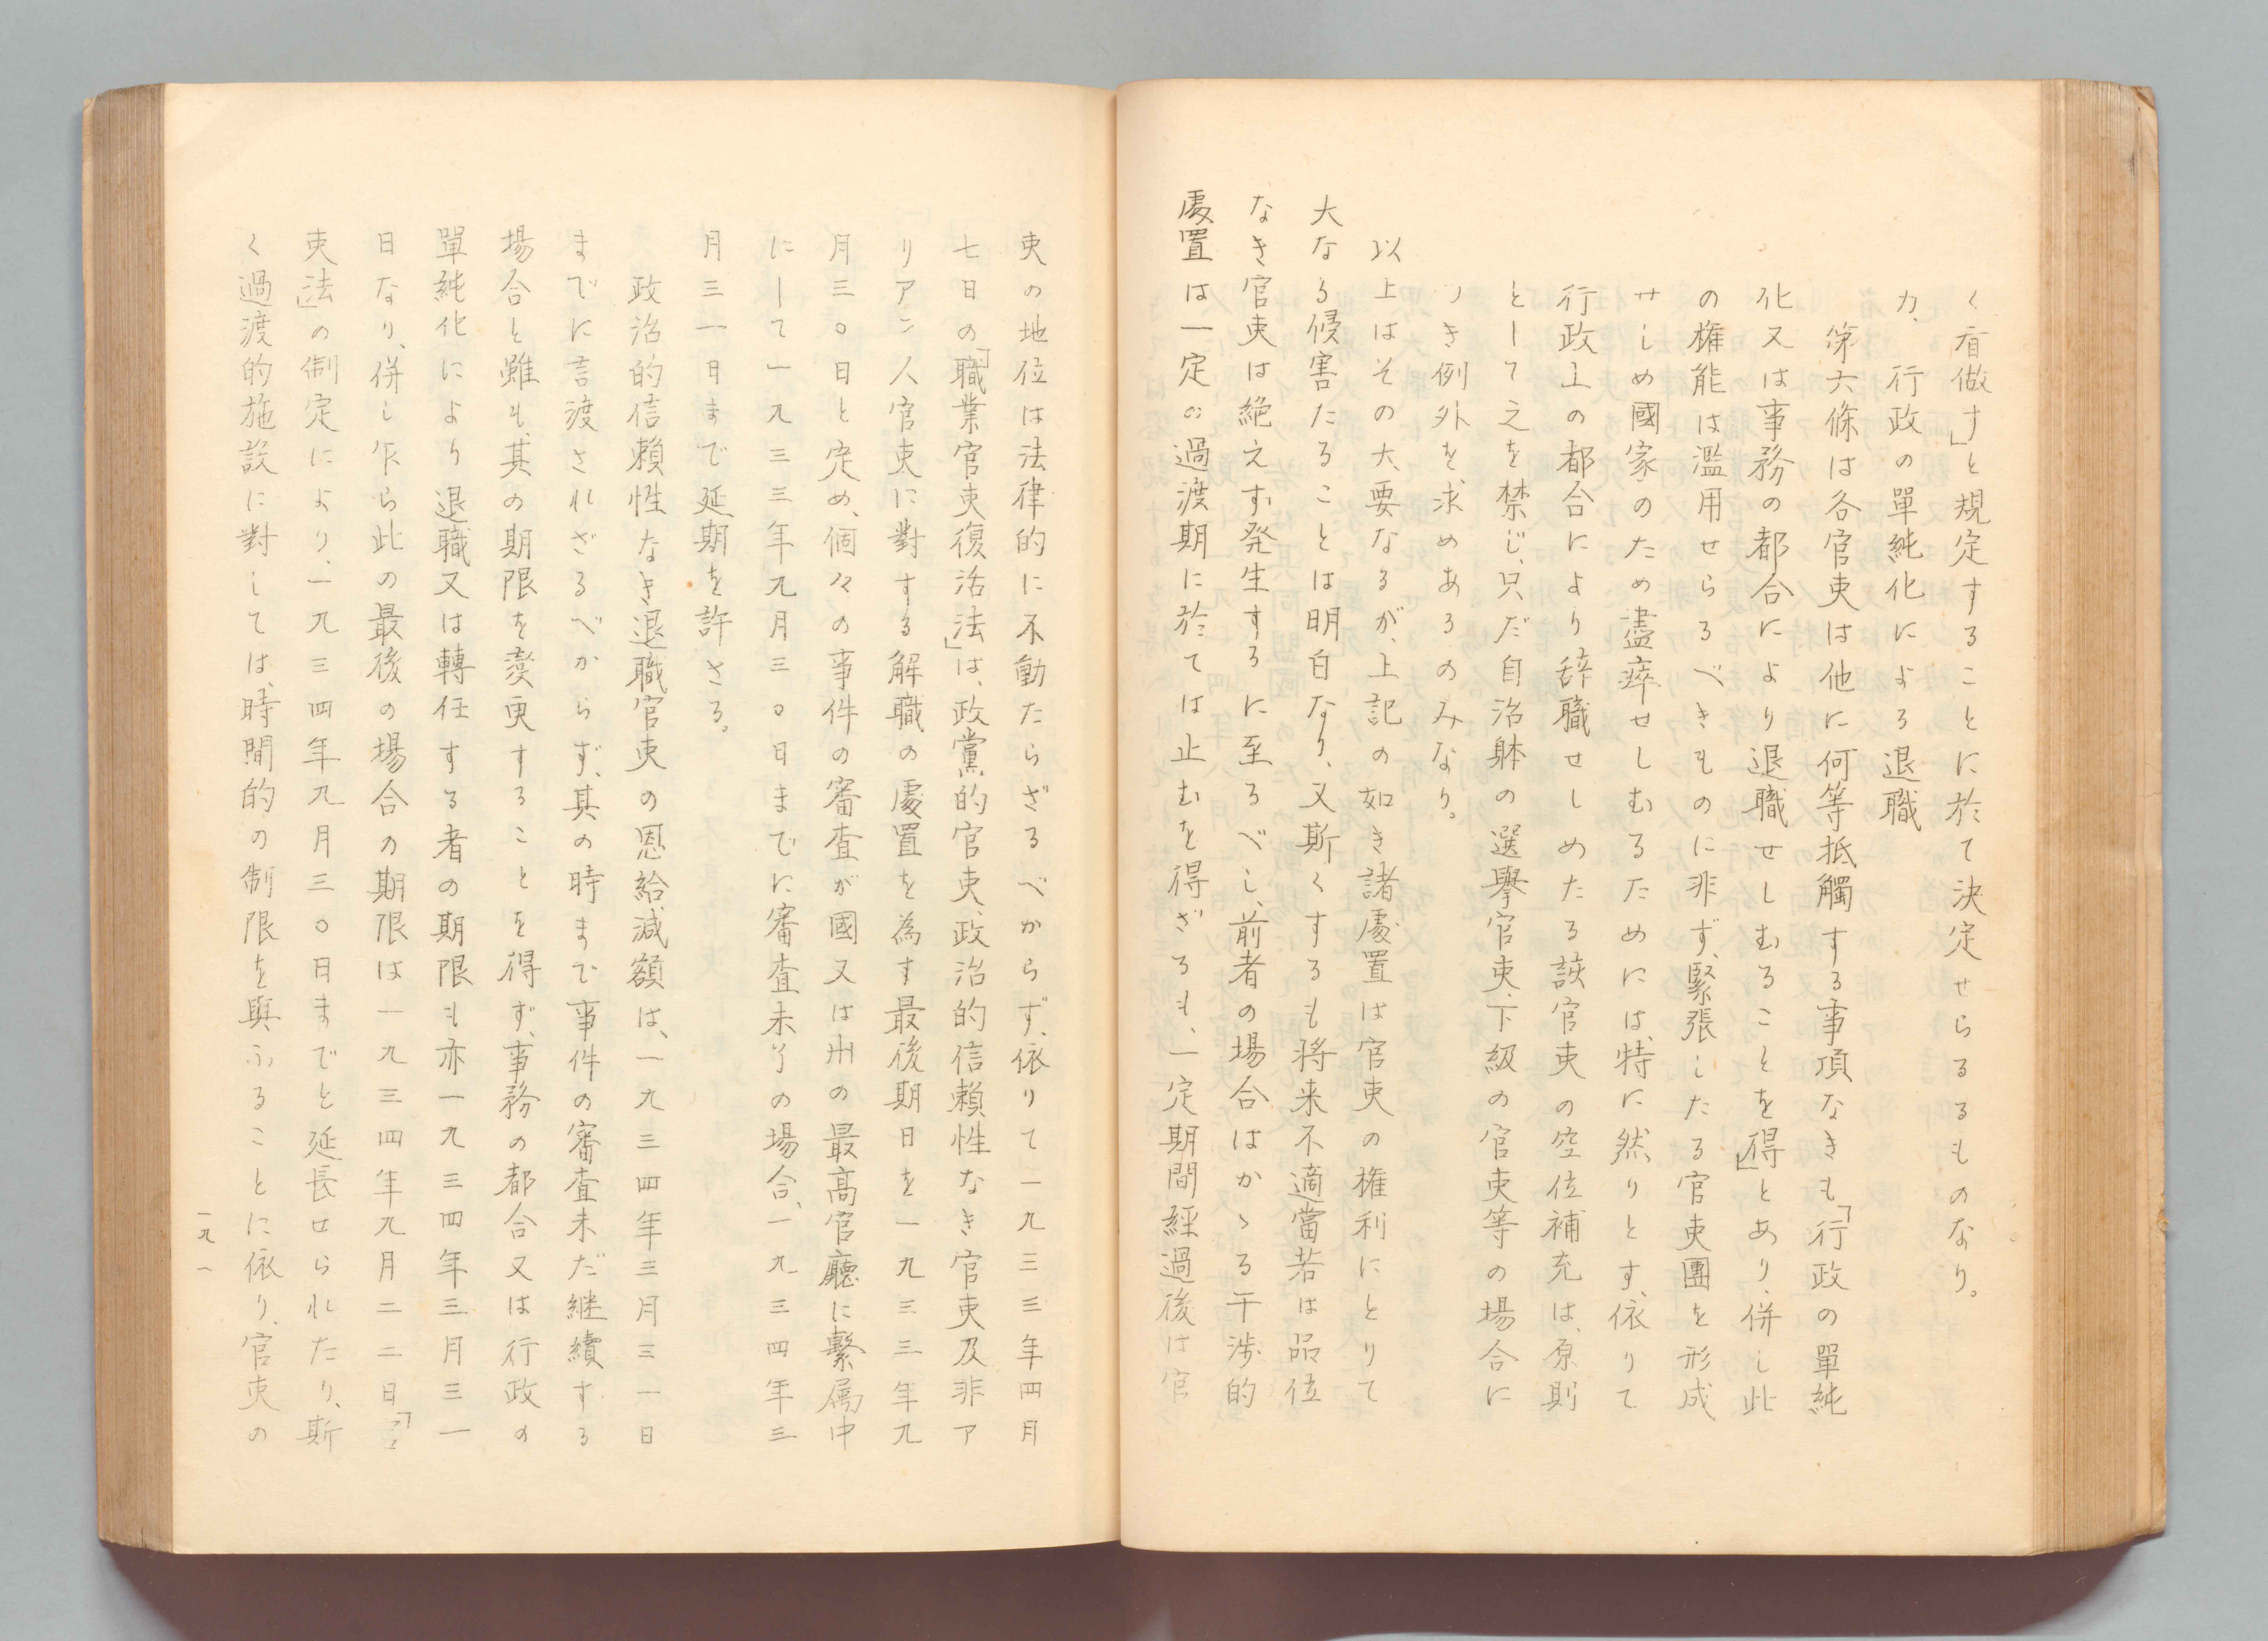 く看做す」と規定することに於て決定せらるるものなり。
力、行政の單純化による退職
第六條は各官吏は他に何等抵觸する事項なきも「行政の單純
化又は事務の都合により退職せしむることを得」とあり、併し此
の権能は濫用せらるべきものに非ず、緊張したる官吏團を形成
せしめ國家のため盡瘁せしむるためには、特に然りとす、依りて
行政上の都合により辞職せしめたる該官吏の空位補充は、原則
として之を禁じ、只だ自治躰の選擧官吏、下級の官吏等の場合に
つき例外を求めあるのみなり。
以上はその大要なるが、上記の如き諸處置は官吏の権利にとりて
大なる侵害たることは明白なり、又斯くするも将来不適當若は品位
なき官吏は絶えず発生するに至るべし、前者の場合はかゝる干渉的
處置は一定の過渡期に於ては止むを得ざるも、一定期間経過後は官
吏の地位は法律的に不動たらざるべからず、依りて一九三三年四月
七日の「職業官吏復活法」は、政黨的官吏、政治的信賴性なき官吏及非ア
リアン人官吏に對する解職の處置を為す最後期日を一九三三年九
月三〇日と定め、個々の事件の審査が國又は州の最高官廳に繋属中
にして一九三三年九月三〇日までに審査未了の場合、一九三四年三
月三一日まで延期を許さる。
政治的信賴性なき退職官吏の恩給減額は、一九三四年三月三一日
までに言渡されざるべからず、其の時まで事件の審査未だ継續する
場合と雖も、其の期限を変更することを得ず、事務の都合又は行政の
單純化により退職又は轉任する者の期限も亦一九三四年三月三一
日なり、併し乍ら此の最後の場合の期限は一九三四年九月二二日「官
吏法」の制定により、一九三四年九月三〇日までと延長せられたり、斯
く過渡的施設に對しては、時間的の制限を與ふることに依り、官吏の
一九一